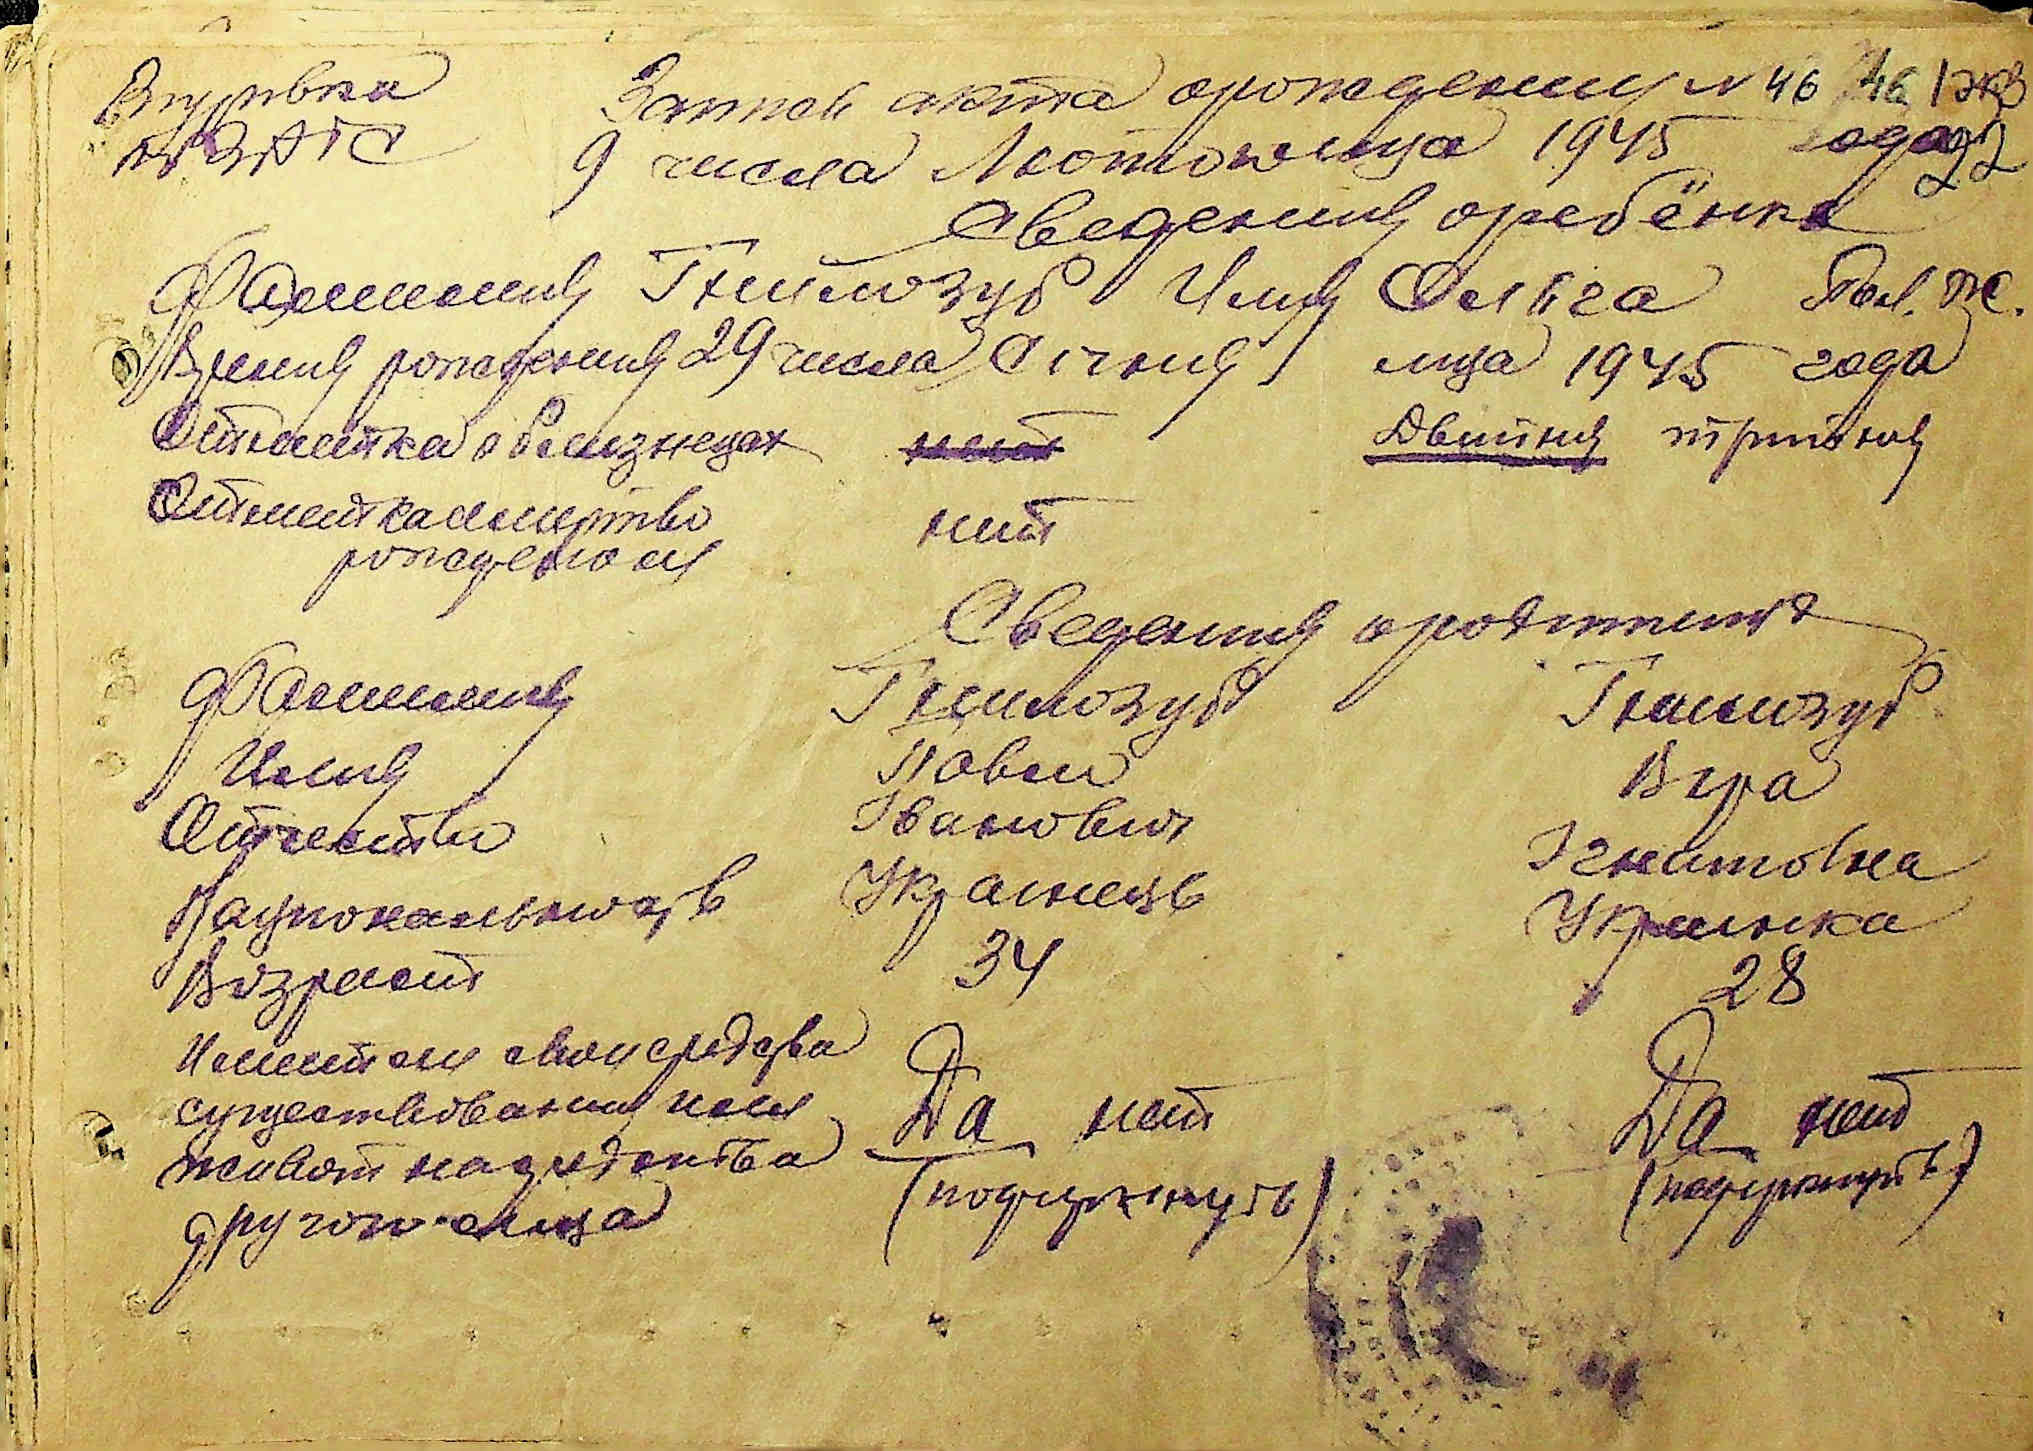 Згурівка Запись акта орождении N 46 46 1экз
ЗАГС 9 числа Лютого мца 1945 года 22
Сведения оребёнке
Фамилия Гнилозуб Имя Ольга Пол. ж.
Время рождения 29 числа Січня мца 1945 года
Отметка о близнецах нет Двойня тройня
Отметка омертво нет
рожденном
Сведения ородителях
Фамилия Гнилозуб Гнилозуб
Имя Павло Вера
Отчество Іванович Ігнатовна
Национальность Украинець Украинка
Возраст 34 28
Имеет ли свои средства
существования или Да нет Да нет
живет насредства (подчеркнуть) (подчеркнуть)
другого лица